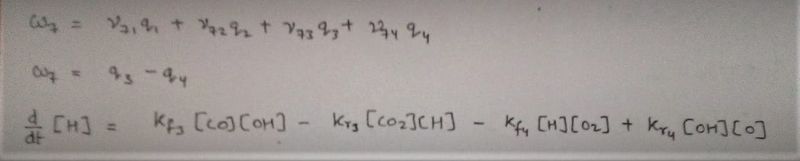 ω₇ = ν₇₁ q₁ + ν₇₂ q₂ + ν₇₃ q₃ + ν₇₄ q₄
ω₇ = q₃ - q₄
d/dt [H] = Kf₃ [CO][OH] - Kr₃ [CO₂][H] - Kf₄ [H][O₂] + Kr₄ [OH][O]